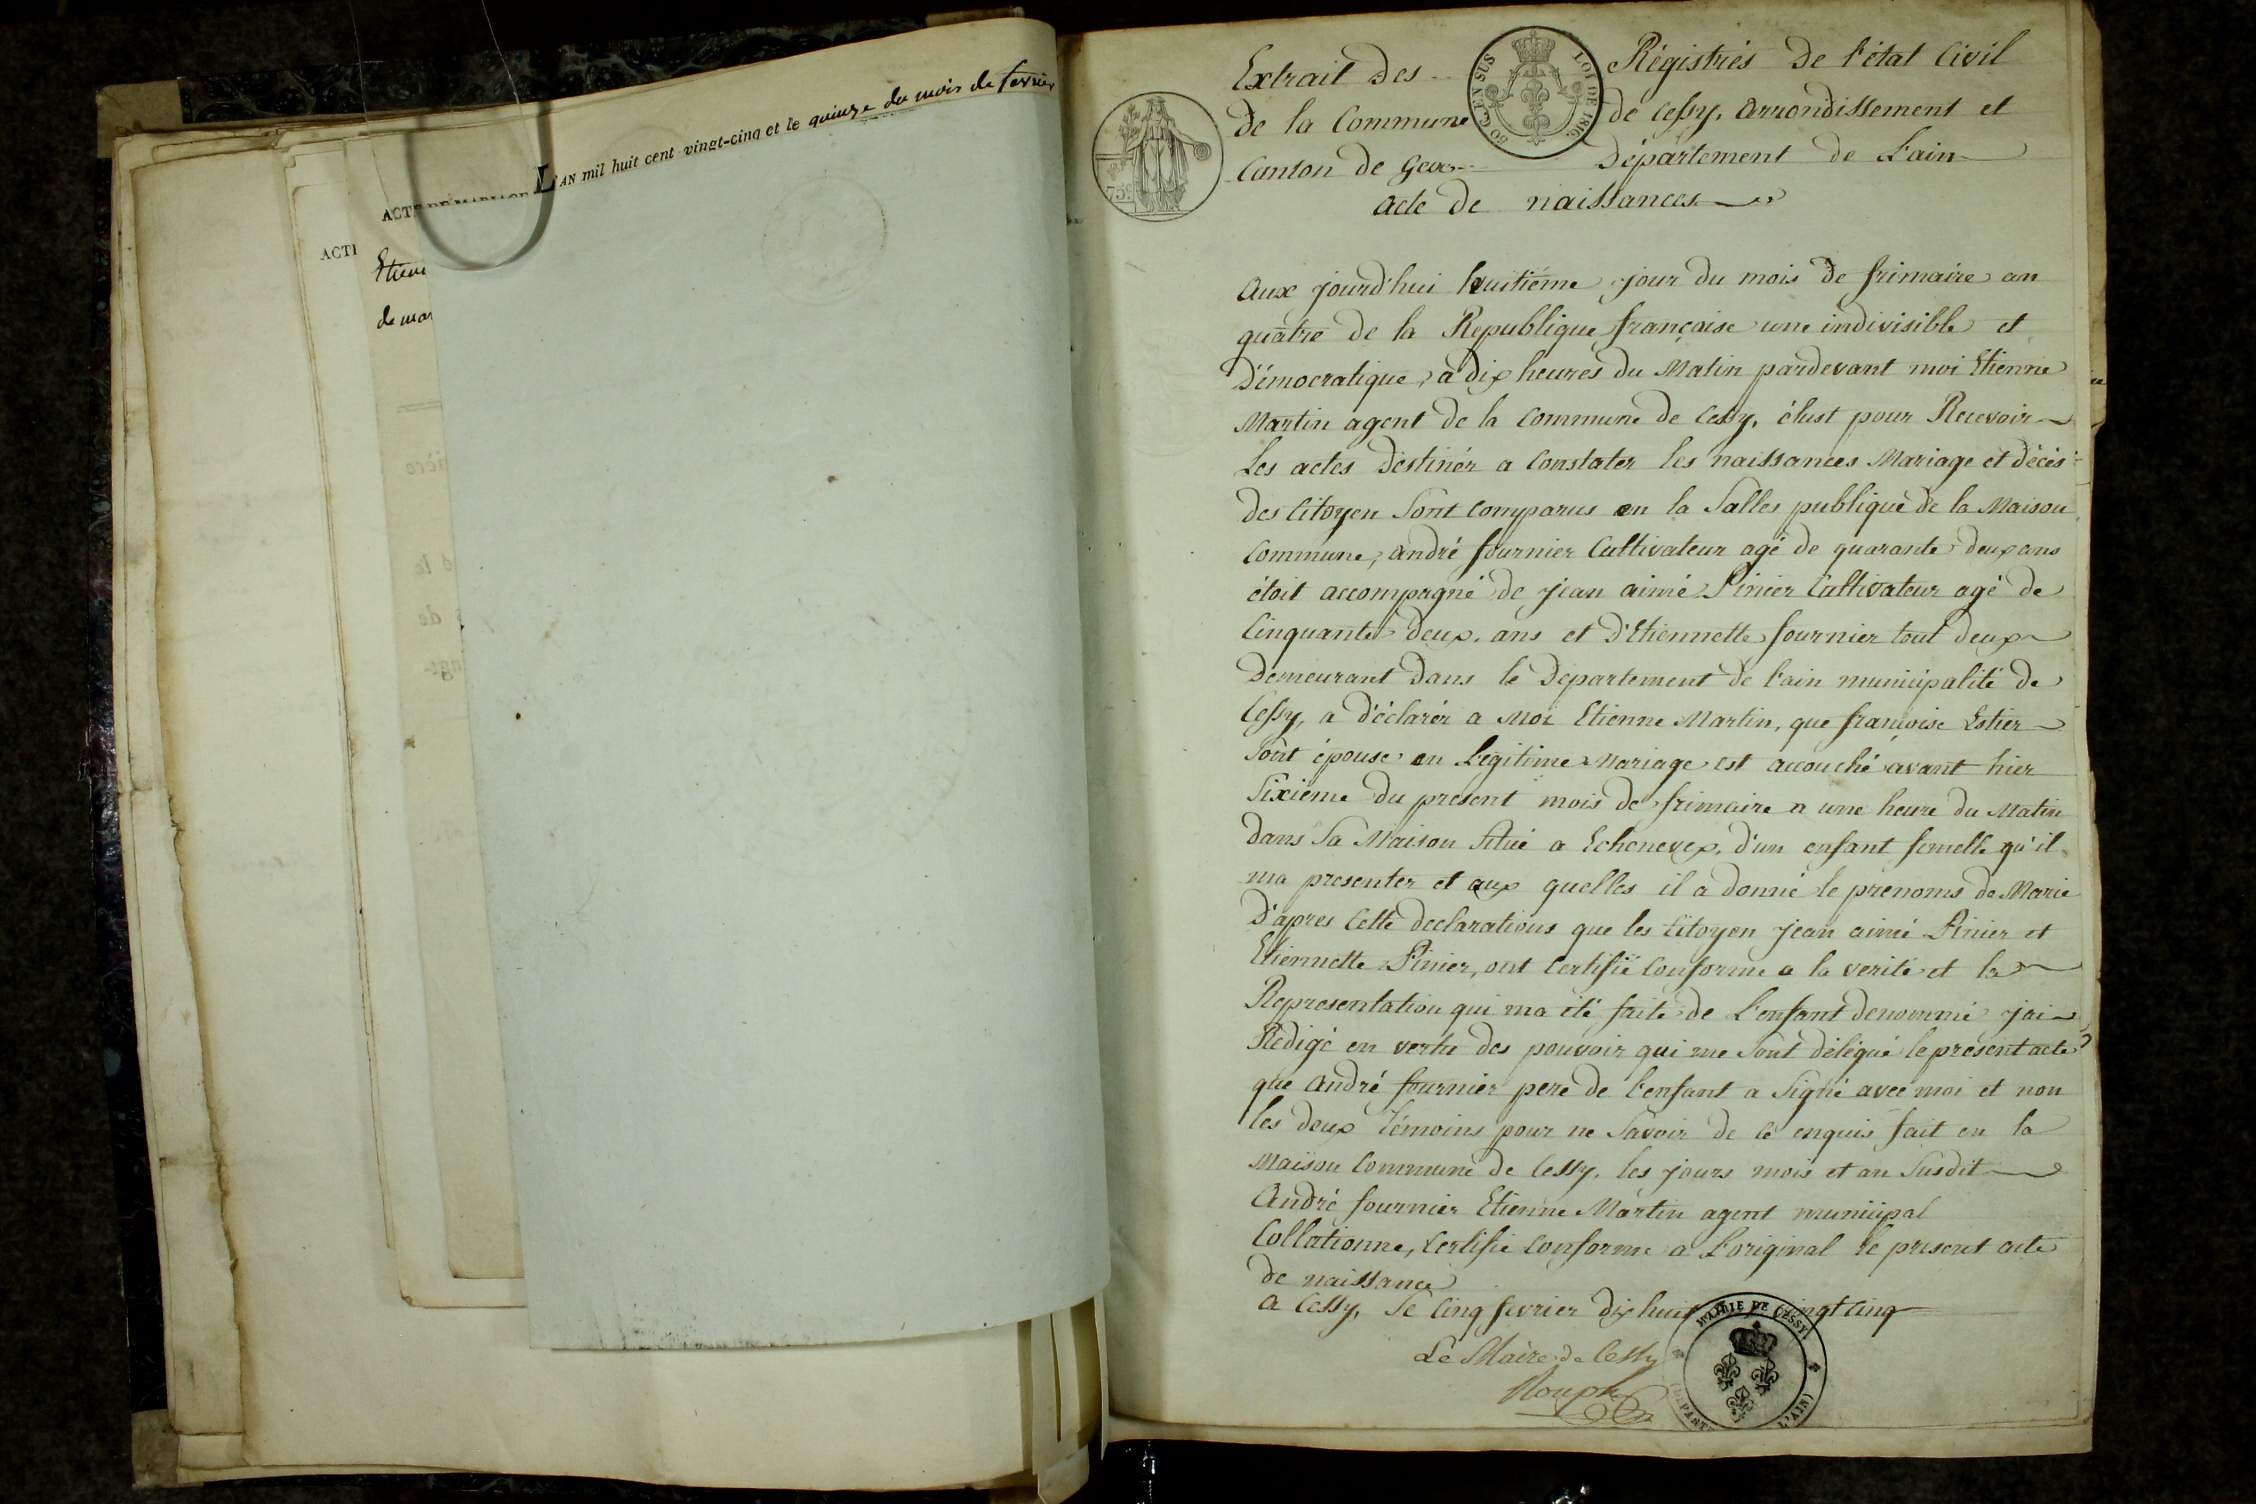 L'AN mil huit cent vingt-cinq et le quinze du mois de fevrier
ACTE DE MARIAGE
ACTE
Etien
de mar
Extrait Des Régistrés De l'état Civil
de la Commune de Cessy, arrondissement et
Canton de Gex Département de L'ain
acte de naissances
50 C. EN SUS
LOI DE 1816.
75
Aux jourd'hui huitiéme jour du mois de frimaire an
quatre de la Republique française une indivisible et
Démocratique, a dix heures du Matin pardevant moi Etienne
Martin agent de la Commune de Cessy, élust pour Recevoir
Les actes déstinér a Constater les naissances Mariage et décés
des Citoyen Sont Comparus en la Salles publique de la Maison
Commune, andré fournier Cultivateur agé de quarante deux ans
étoit accompagné de jean aimé Pinier Cultivateur agé de
Cinquante deux. ans et d'Etiennette fournier tout deux
Demeurant dans le Departement de l'ain municipalité de
Cessy, a déclarér a Moi Etienne Martin, que françoise Estier
Sont épouse en Légitime Mariage est accouché avant hier
Sixieme du present mois de frimaire a une heure du Matin
dans Sa Maison Situé a Echenevex, d'un enfant femelle qu'il
ma presenter et aux quelles il a donné le prenoms de Marie
D'apres Cette declarations que les Citoyen jean aimé Pinier et
Etiennette Pinier, ont Certifié Conforme a la verité et la
Representation qui ma été faite de L'enfant denommé jai
Rédigé en vertu des pouvoir qui me Sont délégué le présent acte
que André fournier pere de l'enfant a Signé avec moi et non
les deux témoins pour ne Savoir de ce enquis fait en la
Maison Commune de Cessy. les jours mois et an Susdit
André fournier Etienne Martin agent municipal
Collationne, Certifié Conforme a L'original le present acte
de naissance
a Cessy, Le Cinq fevrier dix huit vingt cinq
Le Maire de Cessy
MAIRIE DE CESSY
(DÉPART L'AIN)